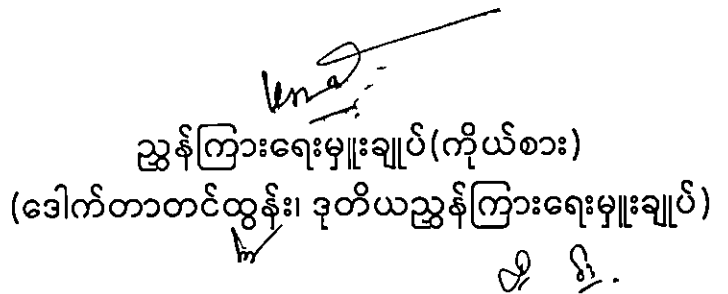 ညွှန်ကြားရေးမှူးချုပ်(ကိုယ်စား)
(ဒေါက်တာတင်ထွန်း၊ ဒုတိယညွှန်ကြားရေးမှူးချုပ်)